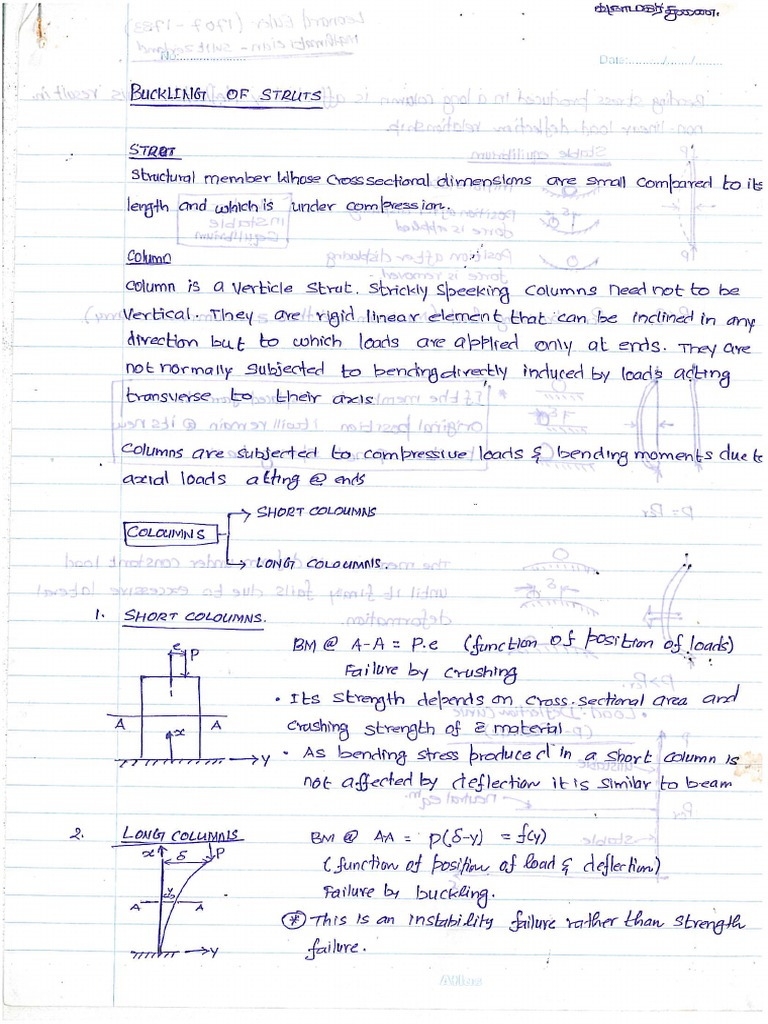 கருமாரி துணை.
No:
Date:........../......./.......
BUCKLING OF STRUTS
STRUT
Structural member whose cross sectional dimensions are small compared to its
length and which is under compression.
Column
Column is a verticle strut. Strickly speeking columns need not to be
vertical. They are rigid linear element that can be inclined in any
direction but to which loads are applied only at ends. They are
not normally subjected to bending directly induced by loads acting
transverse to their axis
Columns are subjected to compressive loads & bending moments due to
axial loads atting @ ends
COLOUMNS
SHORT COLOUMNS
LONG COLOUMNS.
1. SHORT COLOUMNS.
e
P
A
A
x
y
BM @ A-A = P.e (function of position of loads)
Failure by crushing
• Its strength depends on cross-sectional area and
crushing strength of material
• As bending stress produced in a short column is
not affected by deflection it is similar to beam
2. LONG COLUMNS
x
δ
P
y
A
A
y
BM @ AA = P(δ-y) = f(y)
(function of position of load & deflection)
Failure by buckling.
* This is an instability failure rather than strength
failure.
Atlas